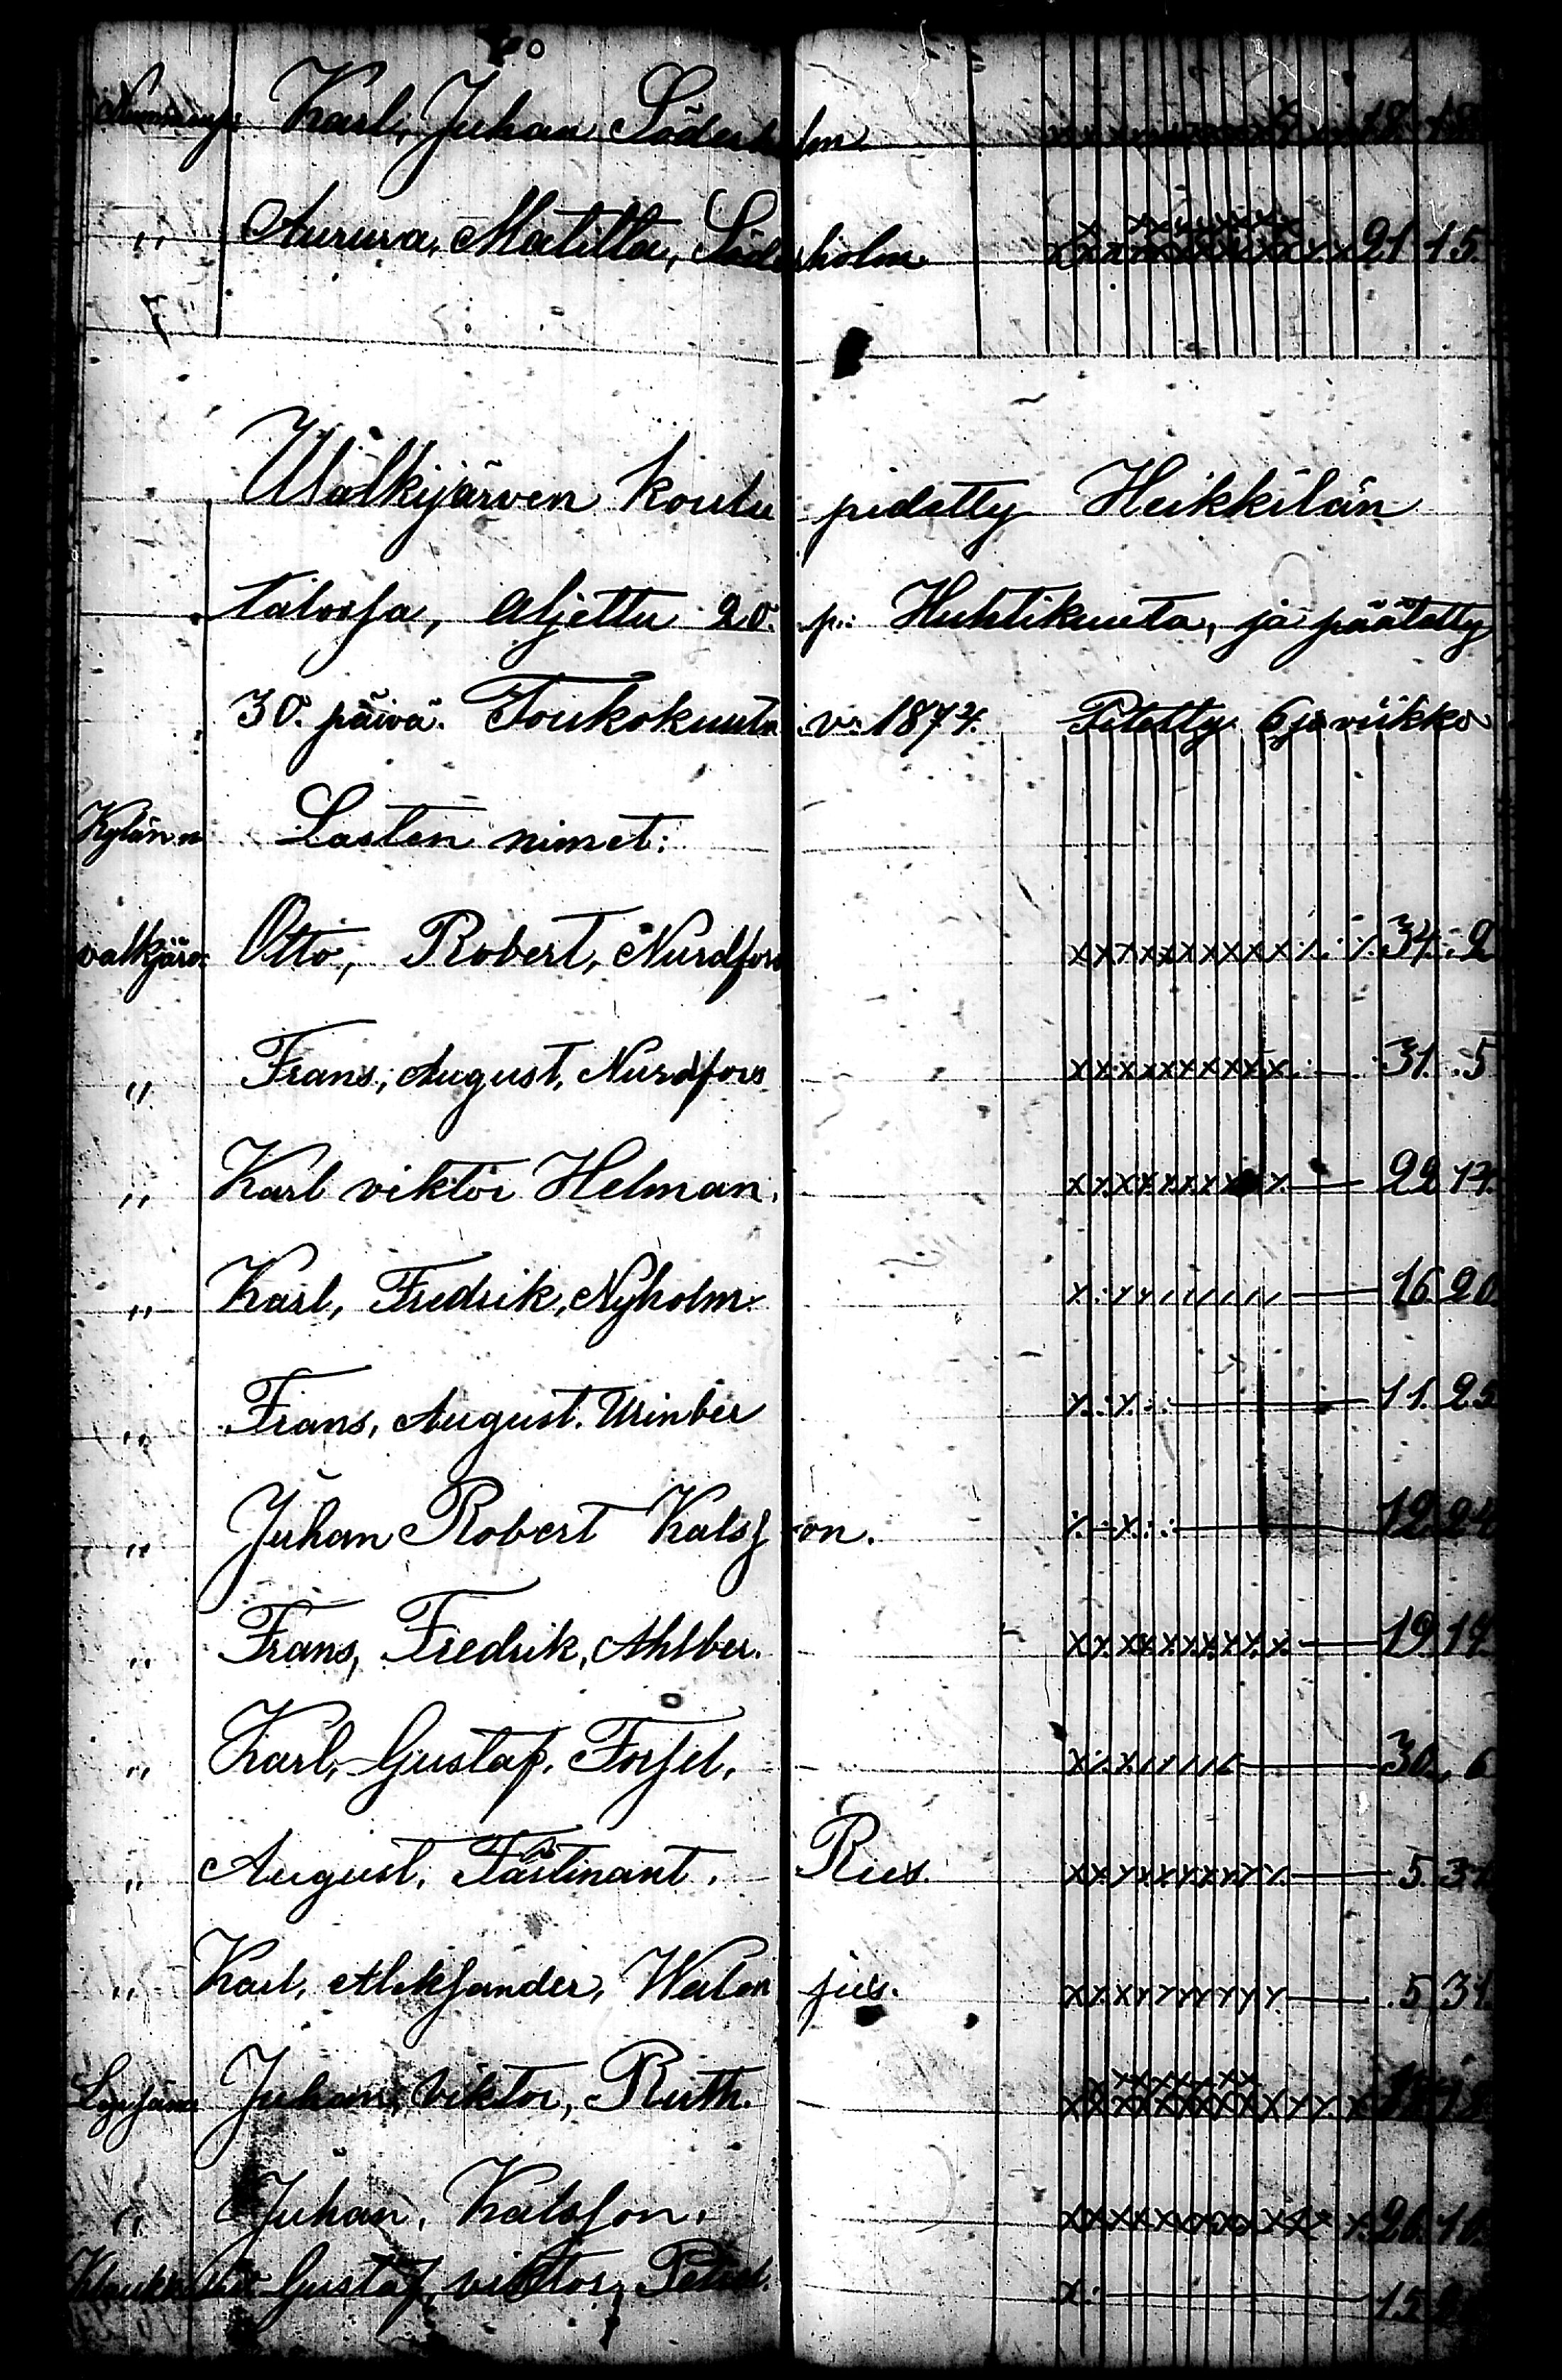 Karl, Juhan Söderholm xx 18 18
" Aurura, Matilta, Söderholm 21 15
7
Walkijärven koulu pidetty Heikkilän
talossa, aljettu 20. p: Huhtikuuta, ja päätetty
30. päivä. Toukokuuta v: 1874. Pitetty 6 ja viikko
Kylän n Lasten nimet:
valkjärv: Otto, Robert, Nurdfors xxxxxxxxxx 34. 2
" Frans, August, Nurdfors xxxxxxxxxx 31. 5
" Karl viktor Helman. 22 17.
" Karl, Fredrik, Nyholm. 16. 20.
" Frans, August. Urinber 11. 25
" Juhan Robert Kalsson. 12. 24
" Frans, Fredrik, Ahlber. 19. 17.
" Karl, Gustaf, Forsel. 30. 6
" August, Tästinant. Rus. 5. 31
" Karl, Aleksander, Walenjus. 5 31.
Juhan, viktor, Ruth. 18
" Juhan, Kalsson. 26. 10.
Gustaf, viktor, 15.